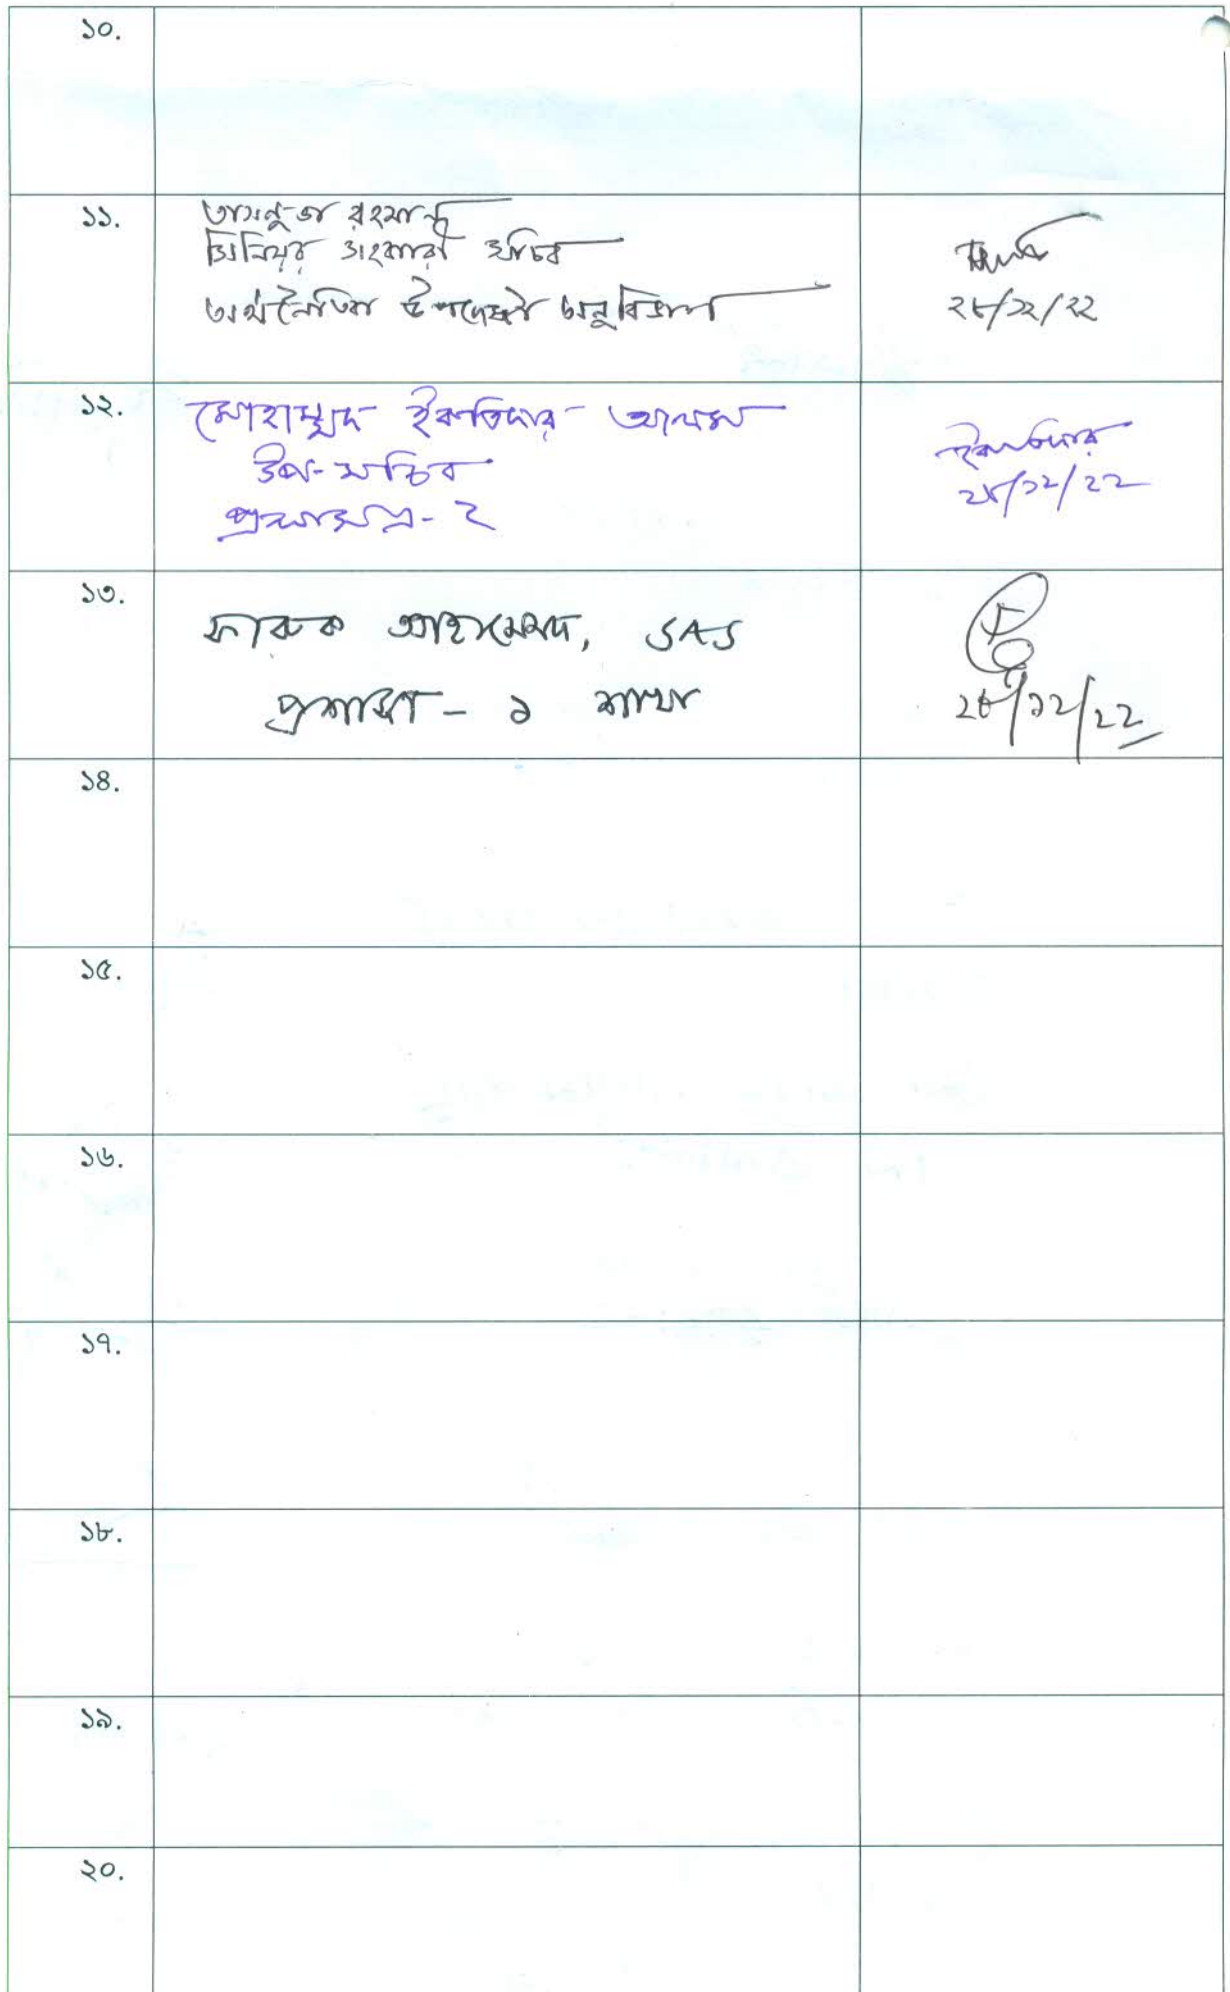 ১০.
১১.
রহমান
সিনিয়র সহকারী সচিব
অর্থনৈতিক উপদেষ্টা অনুবিভাগ
২৮/১২/২২
১২.
মোহাম্মদ ইকতিদার আলম
উপ-সচিব
প্রশাসন-২
ইকতিদার
২৮/১২/২২
১৩.
ফারুক আহমেদ, SAS
প্রশাসন - ১ শাখা
২৮/১২/২২
১৪.
১৫.
১৬.
১৭.
১৮.
১৯.
২০.